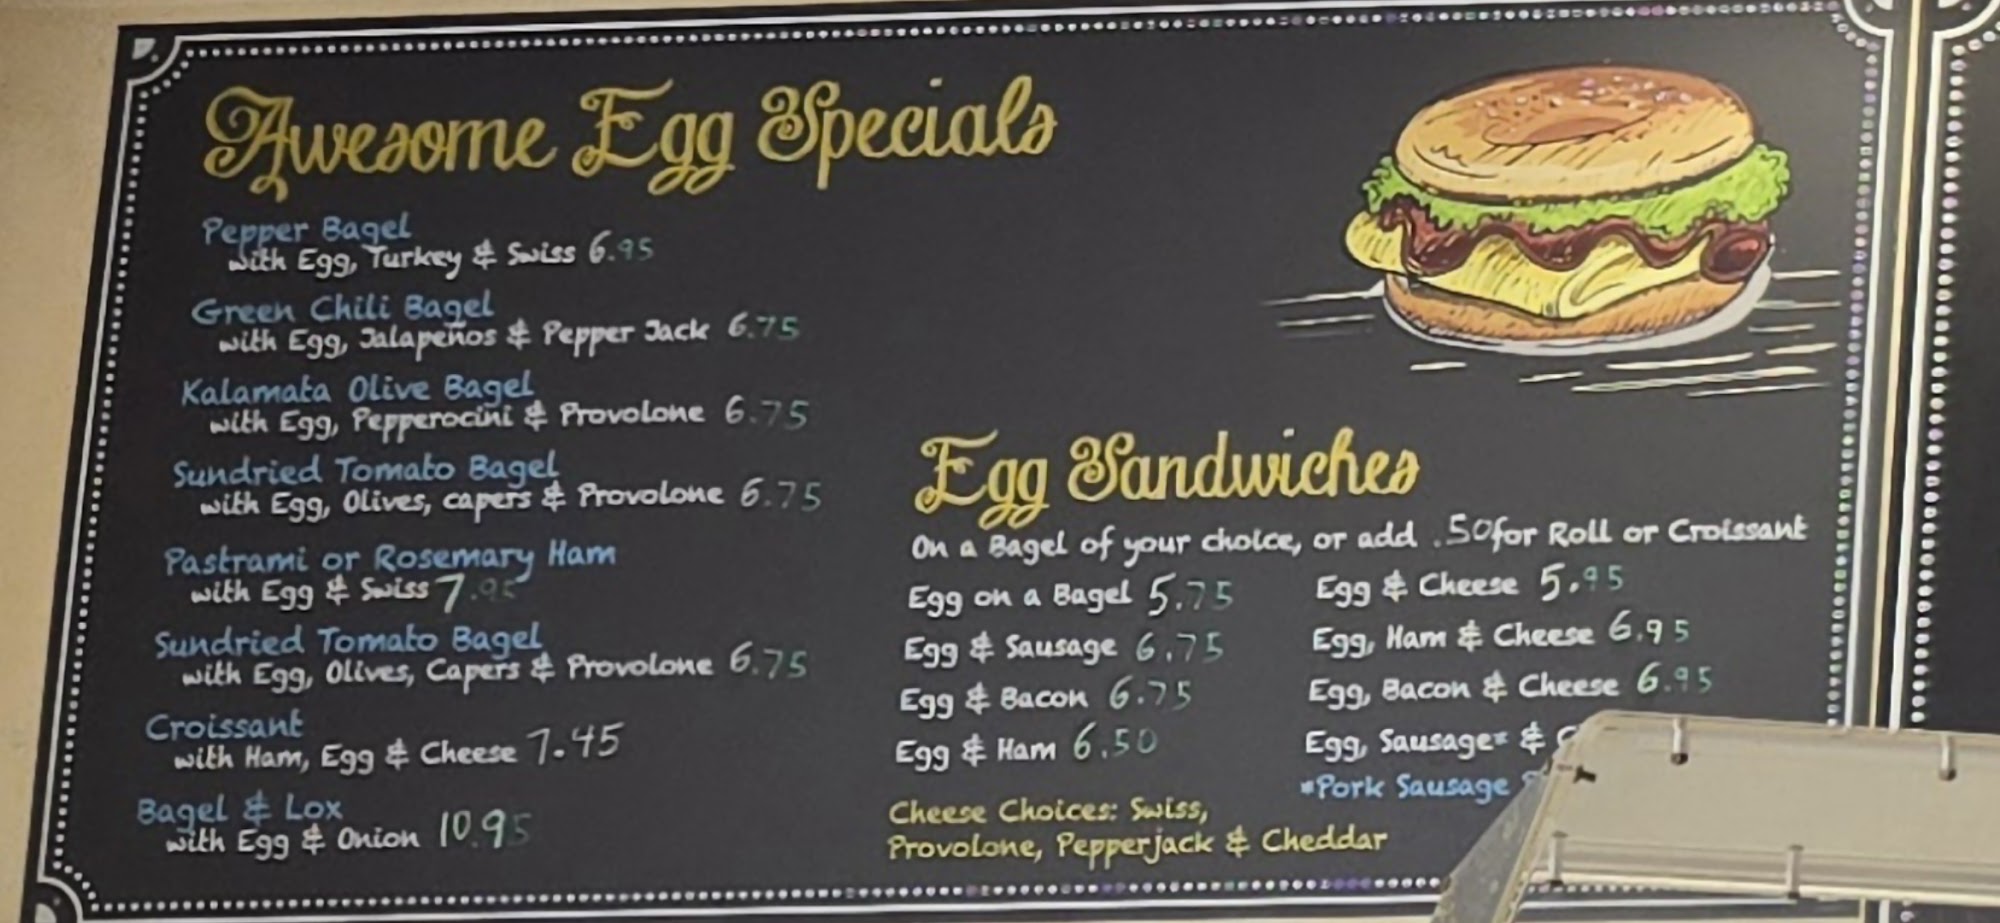 Awesome Egg Specials
Pepper Bagel
with Egg, Turkey & Swiss 6.95
Green Chili Bagel
with Egg, Jalapeños & Pepper Jack 6.75
Kalamata Olive Bagel
with Egg, Pepperocini & Provolone 6.75
Sundried Tomato Bagel
with Egg, Olives, capers & Provolone 6.75
Pastrami or Rosemary Ham
with Egg & Swiss 7.95
Sundried Tomato Bagel
with Egg, Olives, Capers & Provolone 6.75
Croissant
with Ham, Egg & Cheese 7.45
Bagel & Lox
with Egg & Onion 10.95
Egg Sandwiches
On a Bagel of your choice, or add .50 for Roll or Croissant
Egg on a Bagel 5.75
Egg & Sausage 6.75
Egg & Bacon 6.75
Egg & Ham 6.50
Egg & Cheese 5.95
Egg, Ham & Cheese 6.95
Egg, Bacon & Cheese 6.95
Egg, Sausage* &
*Pork Sausage
Cheese Choices: Swiss,
Provolone, Pepperjack & Cheddar